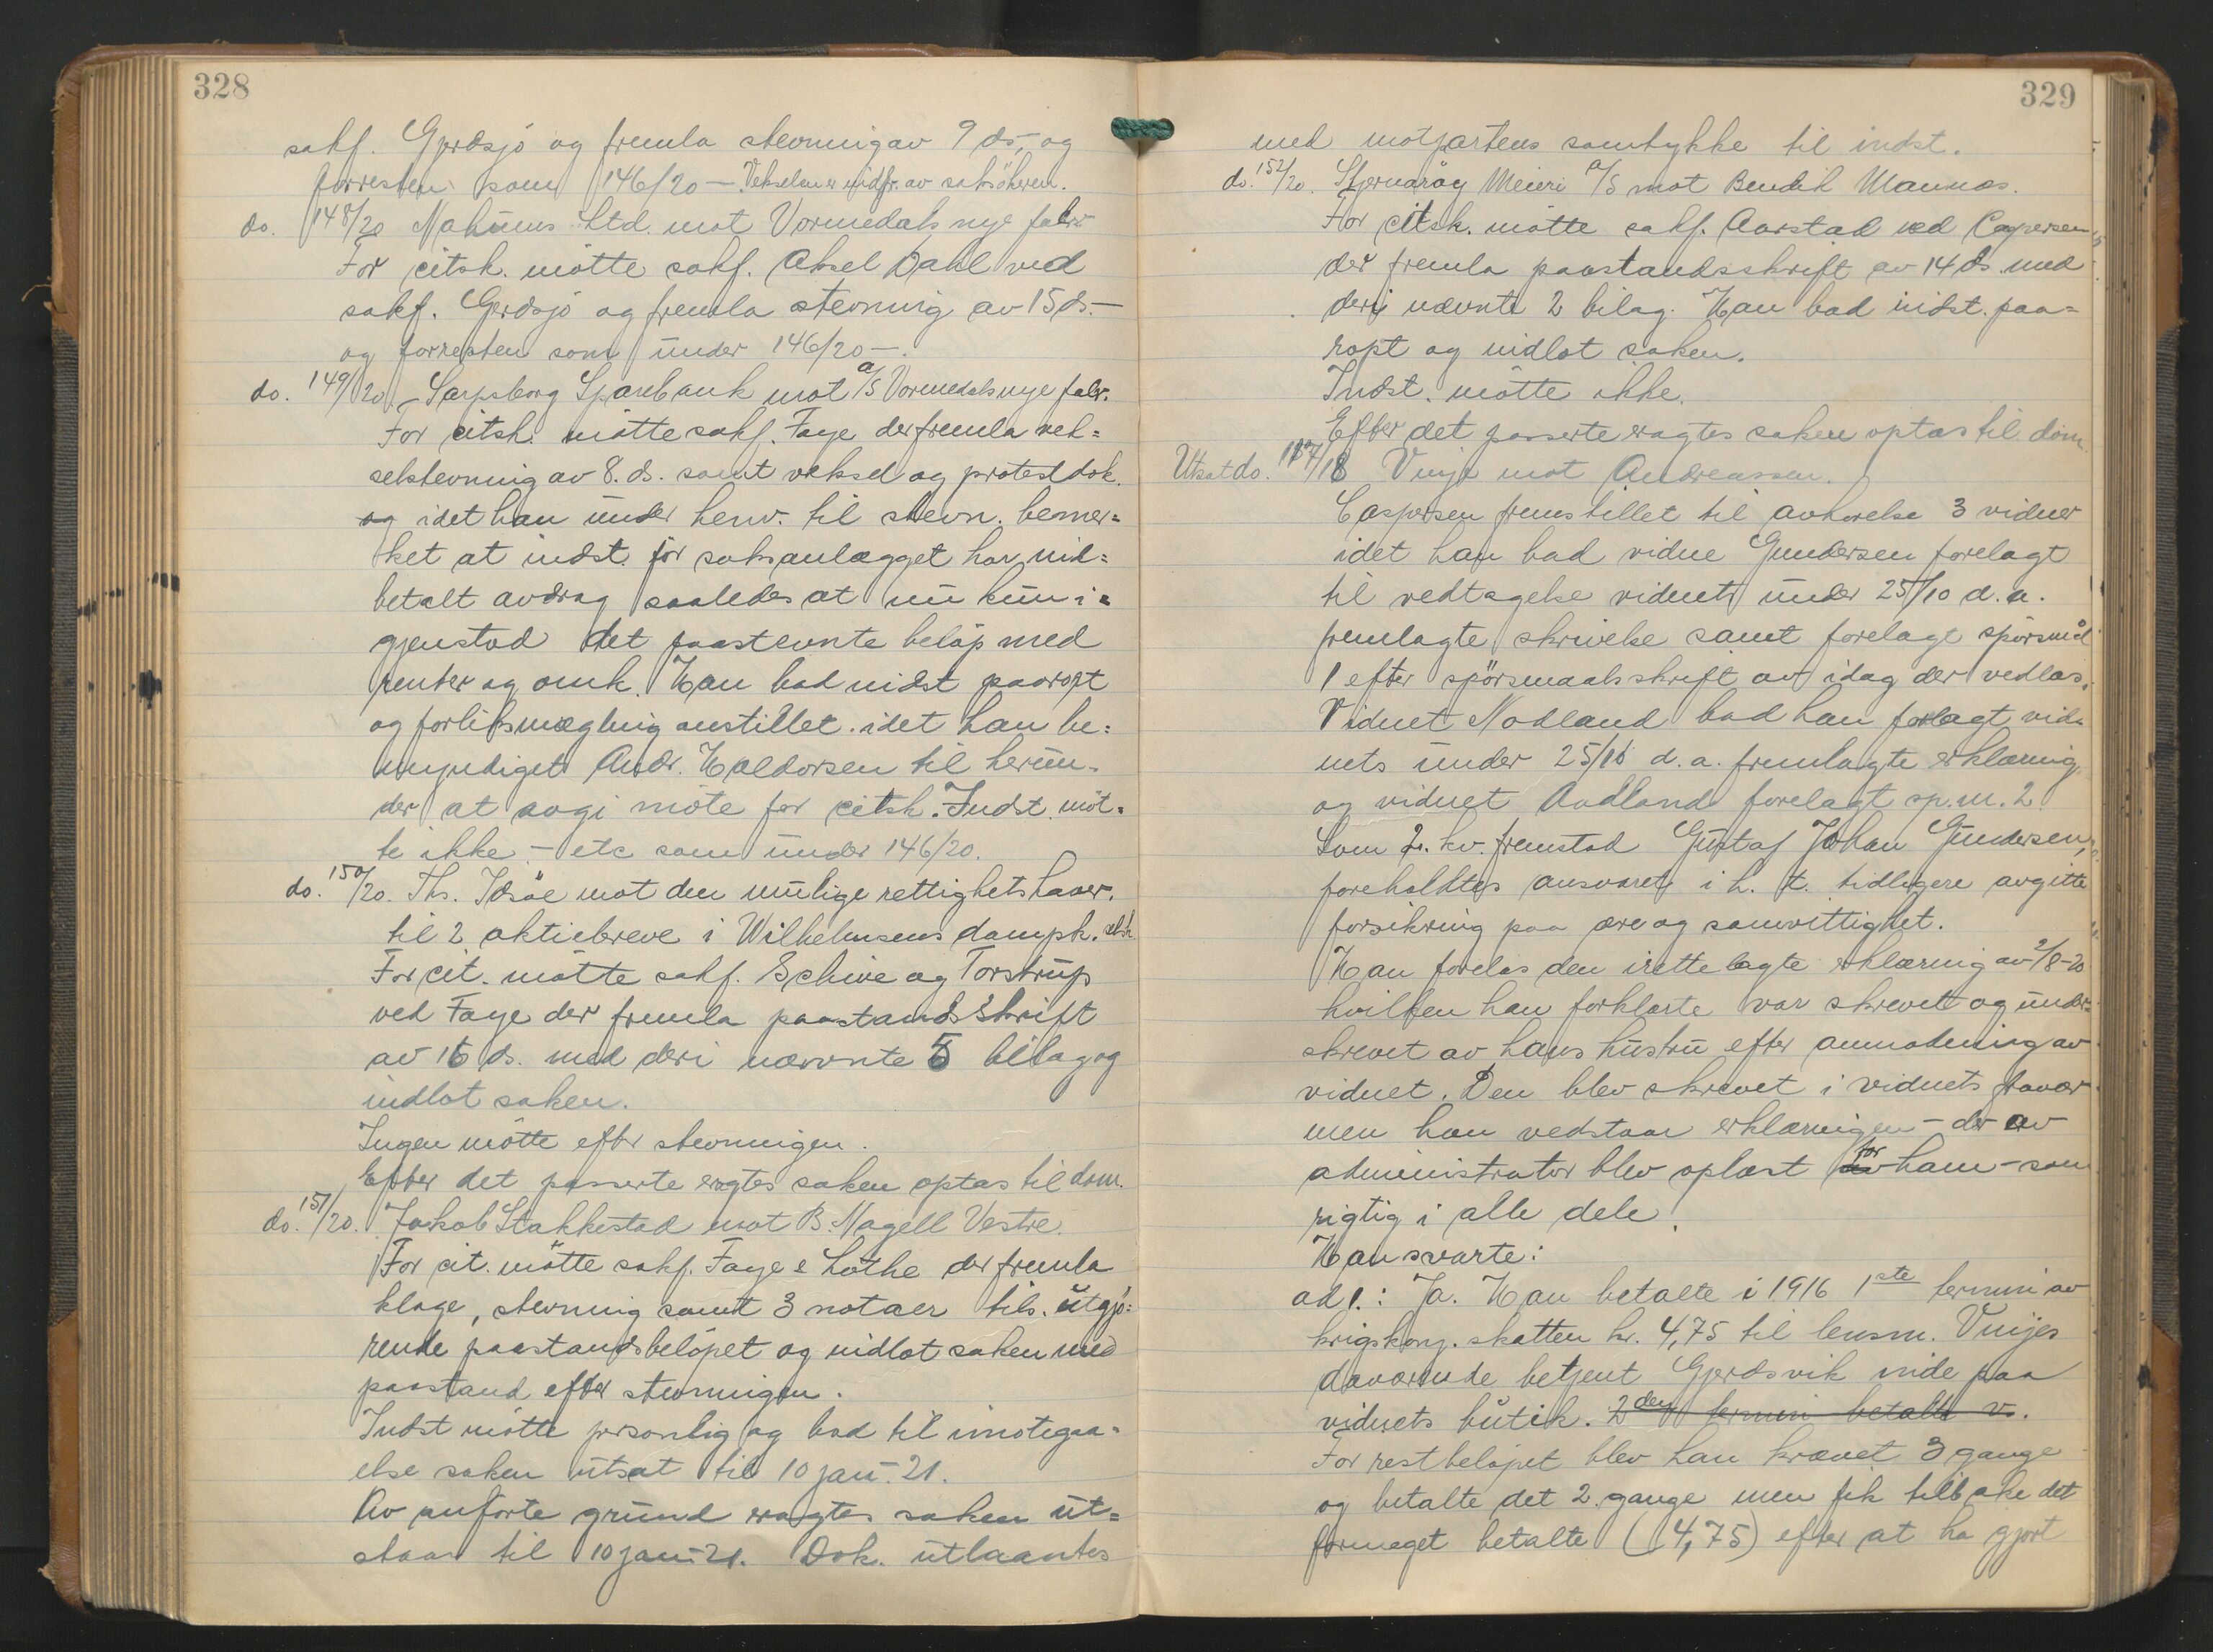 328
sakf. Gjerdsjö og fremla stevning av 9 ds, og
forresten som 146/20 — Vekselen er indfr. av saksökeren.
do. 148/20 Nahums Ltd. mot Vormedals nye fabr.
For citsk. mötte sakf. Aksel Dahl ved
sakf. Gerdsjö og fremla stevning av 15 ds. —
og forresten som under 146/20 —.
do. 149/20 — Sarpsborg Sparebank mot A/S Vormedals nye fabr.
For citsk. mötte sakf. Faye der fremla vek=
selstevning av 8. ds. samt veksel og protestdok.
og idet han under henv. til stevn. bemer=
ket at indst. för saksanlægget har ind=
betalt avdrag saaledes at nu kun i=
gjenstod det paastevnte belöp med
renter og omk. Han bad indst paaropt
og forliksmægling anstillet. idet han be=
myndiget Andr. Haldorsen til herun=
der at avgi möte for citsk. Indst. möt=
te ikke — etc som under 146/20.
do. 150/20. Ths. Idsöe mot den mulige rettighetshaver.
til 2 aktiebreve i Wilhelmsens dampsk. selsk
For cit. mötte sakf. Schive og Torstrup
ved Faye der fremla paastandsskrift
av 16 ds. med deri nævnte 5 bilag og
indlot saken.
Ingen mötte efter stevningen.
Efter det passerte eragtes saken optas til dom.
do. 151/20. Jakob Stakkestad mot B. Nagell Vestre.
For cit. mötte sakf. Faye & Lothe der fremla
klage, stevning samt 3 notaer tils. utgjö=
rende paastandsbelöpet og indlot saken med
paastand efter stevningen.
Indst mötte personlig og bad til imötegaa=
else saken utsat til 10 jan. 21.
Av anförte grund eragtes saken ut=
staar til 10 jan 21. Dok. utlaantes
329
med motpartens samtykke til indst.
do. 152/20. Stjernaröy Meieri A/S mot Bendik Mannes.
For citsk. mötte sakf. Aarstad ved Caspersen
der fremla paastandsskrift av 14 ds. med
deri nævnte 2 bilag. Han bad indst. paa=
ropt og indlot saken.
Indst. mötte ikke.
Efter det passerte eragtes saken optas til dom
Utsat do. 187/18 Vinje mot Andreassen.
Caspersen fremstillet til avhörelse 3 vidner
idet han bad vidne Gundersen forelagt
til vedtagelse vidnets under 25/10 d.a.
fremlagte skrivelse samt forelagt spörsmål
1 efter spörsmaalsskrift av idag der vedlas.
Vidnet Nodland bad han forlagt vid=
nets under 25/10 d.a. fremlagte erklæring
og vidnet Aadland forelagt sp.m. 2
Som 2. kv. fremstod Gustaf Johan Gundersen,
foreholdtes ansvaret i h. t. tidligere avgitte
forsikring paa ære og samvittighet.
Han foreløs den irettelagte erklæring av 2/8-20
hvilken han forklarte var skrevet og under=
skrevet av hans hustru efter anmodning av
vidnet. Den blev skrevet i vidnets fravær
men han vedstaar erklæringen — der av
administrator blev oplæst for ham — som
rigtig i alle dele.
Han svarte:
ad 1.: Ja. Han betalte i 1916 1ste termin av
krigskonj. skatten kr. 4,75 til lensm. Vinjes
daværende betjent Gjerdsvik inde paa
vidnets butik. 2den termin betalte v.
For restbelöpet blev han krævet 3 gange
og betalte det 2. gange men fik tilbake det
formeget betalte (4,75) efter at ha gjort